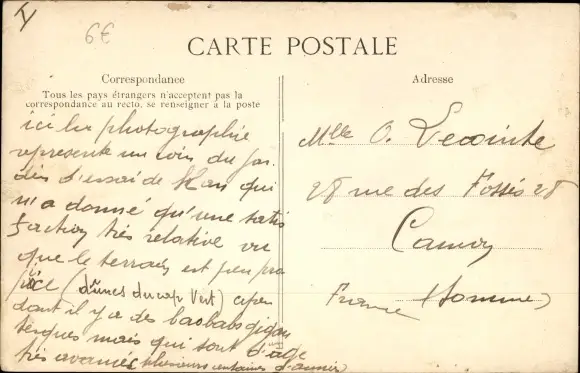 V
6€
CARTE POSTALE
Correspondance
Tous les pays étrangers n'acceptent pas la
correspondance au recto, se renseigner à la poste
Adresse
ici la photographie
represente un coin du jar
din d'essai de Han qui
m'a donné qu'une satis
faction très relative vu
que le terrain est peu pro
pice (dunes du cap Vert)
dont il y a des baobabs gigan
tesques mais qui sont d'age
très avancés (plusieurs centaines d'années)
Mlle O. Lecointe
28 rue des Fossés 28
France (Somme)